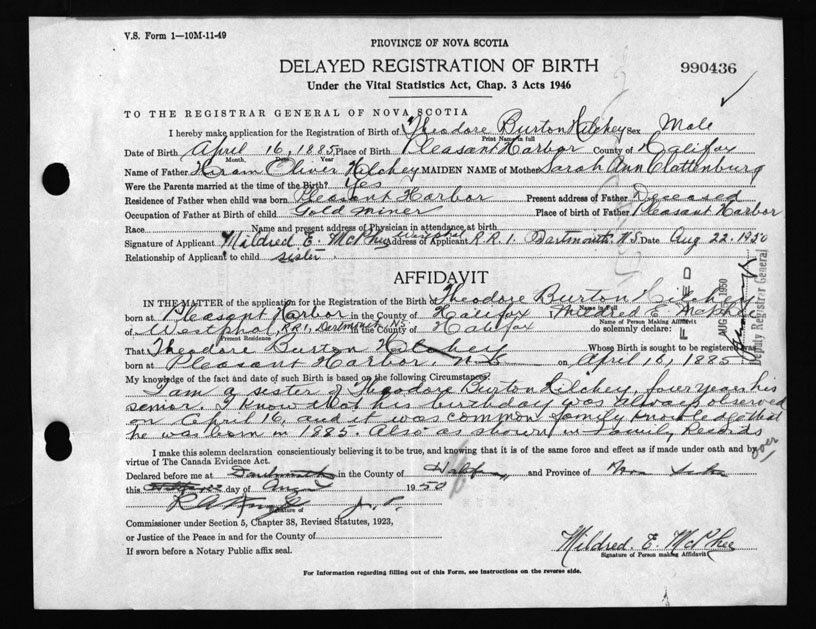 V.S. Form 1—10M-11-49
PROVINCE OF NOVA SCOTIA
DELAYED REGISTRATION OF BIRTH
990436
Under the Vital Statistics Act, Chap. 3 Acts 1946
TO THE REGISTRAR GENERAL OF NOVA SCOTIA
I hereby make application for the Registration of Birth of Theodore Burton Hilchey Sex Male
Print Name in full
Date of Birth April 16, 1885 Place of Birth Pleasant Harbor County of Halifax
Month, Date, Year
Name of Father Hiram Oliver Hilchey MAIDEN NAME of Mother Sarah Ann Clattenburg
Were the Parents married at the time of the Birth? Yes
Residence of Father when child was born Pleasant Harbor Present address of Father Deceased
Occupation of Father at Birth of child Gold miner Place of birth of Father Pleasant Harbor
Race Name and present address of Physician in attendance at birth
Signature of Applicant Mildred E. McPhee Address of Applicant Westphal R.R. 1. Dartmouth N.S. Date Aug 22. 1950
Relationship of Applicant to child sister
AFFIDAVIT
IN THE MATTER of the application for the Registration of the Birth of Theodore Burton Hilchey
born at Pleasant Harbor in the County of Halifax I Mildred E. McPhee
Name of Person Making Affidavit
of Westphal, RR1, Dartmouth NS County of Halifax do solemnly declare:
Present Residence
That Theodore Burton Hilchey Whose Birth is sought to be registered was
born at Pleasant Harbor N S on April 16, 1885
My knowledge of the fact and date of such Birth is based on the following Circumstances:
I am a sister of Theodore Burton Hilchey, four years his
senior. I know that his birthday was always observed
on April 16, and it was common family knowledge that
he was born in 1885. Also as shown in Family Records
over
I make this solemn declaration conscientiously believing it to be true, and knowing that it is of the same force and effect as if made under oath and by
virtue of The Canada Evidence Act.
Declared before me at Dartmouth in the County of Halifax, and Province of Nova Scotia
this day of August 1950
Signature of J. P.
Commissioner under Section 5, Chapter 38, Revised Statutes, 1923,
or Justice of the Peace in and for the County of
If sworn before a Notary Public affix seal.
Mildred. E. McPhee
Signature of Person making Affidavit
For Information regarding filling out of this Form, see instructions on the reverse side.
FILED
AUG 1950
Deputy Registrar General